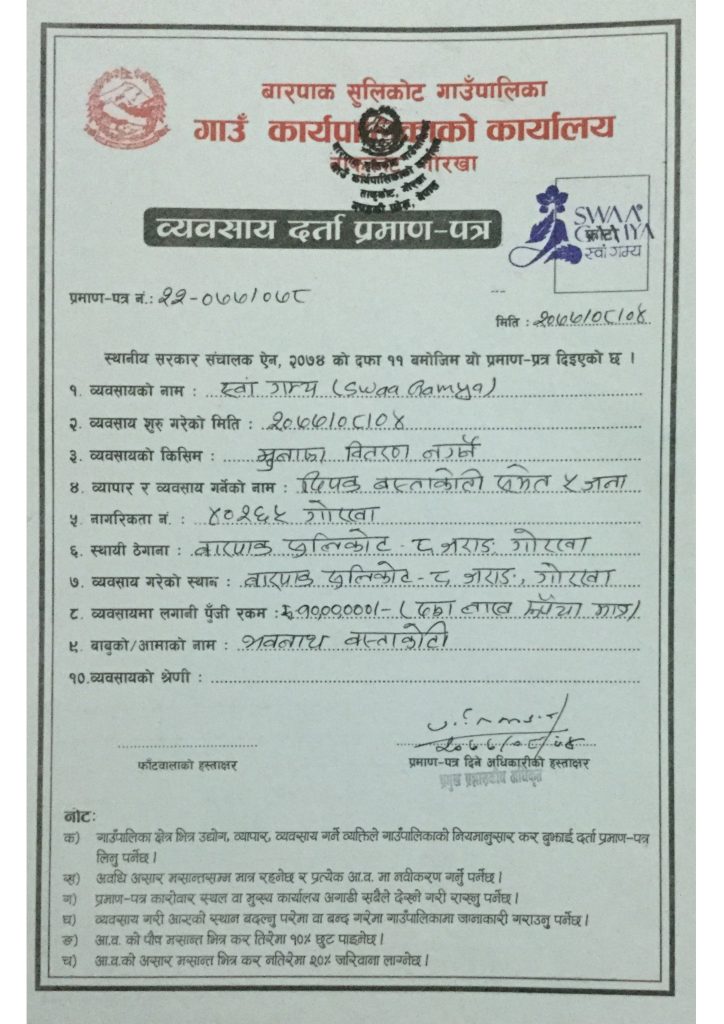 बारपाक सुलिकोट गाउँपालिका
गाउँ कार्यपालिकाको कार्यालय
गोरखा
व्यवसाय दर्ता प्रमाण-पत्र
SWAA
स्वां गम्य
प्रमाण-पत्र नं.: २२-०७७/०७८
मिति : २०७७/०८/०४
स्थानीय सरकार संचालक ऐन, २०७४ को दफा ११ बमोजिम यो प्रमाण-प्रत्र दिइएको छ ।
१. व्यवसायको नाम : स्वां गम्य (Swaa Gamya)
२. व्यवसाय शुरु गरेको मिति : २०७७/०८/०४
३. व्यवसायको किसिम : मुनाफा वितरण नगर्ने
४. व्यापार र व्यवसाय गर्नेको नाम : दिपक बस्ताकोटी समेत ५ जना
५. नागरिकता नं. : ४०२६५ गोरखा
६. स्थायी ठेगाना : बारपाक सुलिकोट - ८ भराङ गोरखा
७. व्यवसाय गरेको स्थान : बारपाक सुलिकोट - ८ भराङ, गोरखा
८. व्यवसायमा लगानी पुँजी रकम : रु १०,००,०००।- (दश लाख रूपैँया मात्र)
९. बाबुको/आमाको नाम : भवनाथ बस्ताकोटी
१०.व्यवसायको श्रेणी :
२०७७/०८/०४
फाँटवालाको हस्ताक्षर
प्रमाण-पत्र दिने अधिकारीको हस्ताक्षर
प्रमुख प्रशासकीय अधिकृत
नोटः
क) गाउँपालिका क्षेत्र भित्र उद्योग, व्यापार, व्यवसाय गर्ने व्यक्तिले गाउँपालिकाको नियमानुसार कर बुझाई दर्ता प्रमाण-पत्र
लिनु पर्नेछ ।
ख) अवधि असार मसान्तसम्म मात्र रहनेछ र प्रत्येक आ.व. मा नवीकरण गर्नु पर्नेछ ।
ग) प्रमाण-पत्र कारोवार स्थल वा मुख्य कार्यालय अगाडी सबैले देख्ने गरी राख्नु पर्नेछ ।
घ) व्यवसाय गरी आएकी स्थान बदल्नु परेमा वा बन्द गरेमा गाउँपालिकामा जानाकारी गराउनु पर्नेछ ।
ङ) आ.व. को पौष मसान्त भित्र कर तिरेमा १०% छुट पाइनेछ ।
च) आ.व.की असार मसान्त भित्र कर नतिरेमा २०% जरिवाना लाग्नेछ ।